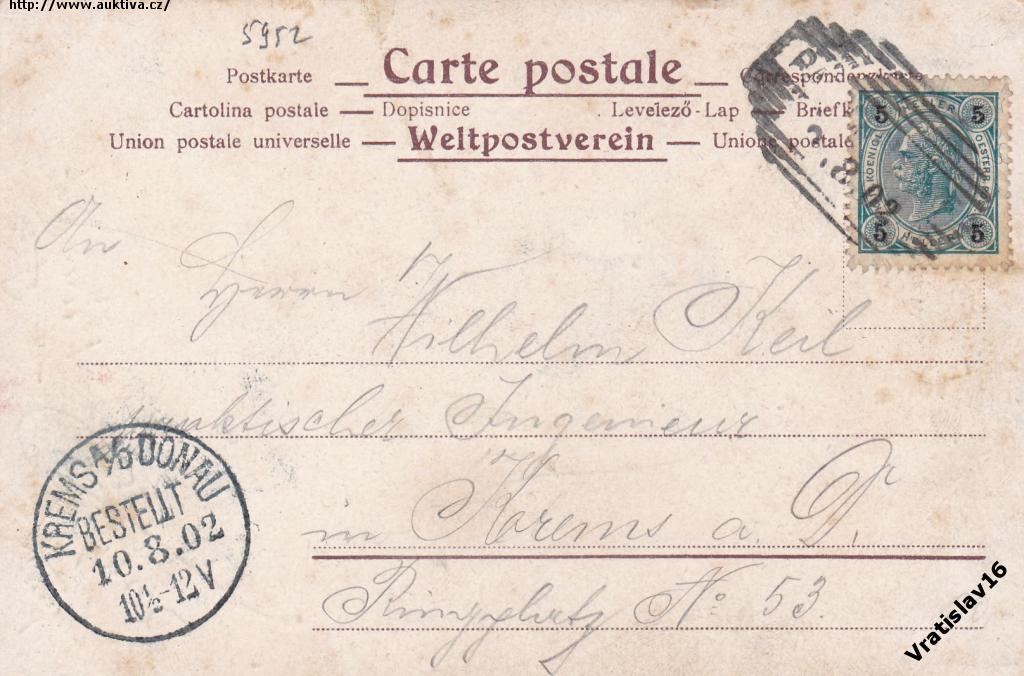 http://www.auktiva.cz/
5952
Carte postale
Postkarte — Correspondenzkarte
Cartolina postale — Dopisnice Levelező-Lap — Briefk
Union postale universelle — Weltpostverein — Unione postale
5 HELLER 5
KOENIGL OESTERR
5 HELLER 5
.8.02
An
Herrn Wilhelm Keil
praktischer Ingenieur
in Krems a. D.
Ringplatz No 53.
KREMS A/D DONAU
BESTELLT
10.8.02
10½-12V
Vratislav16